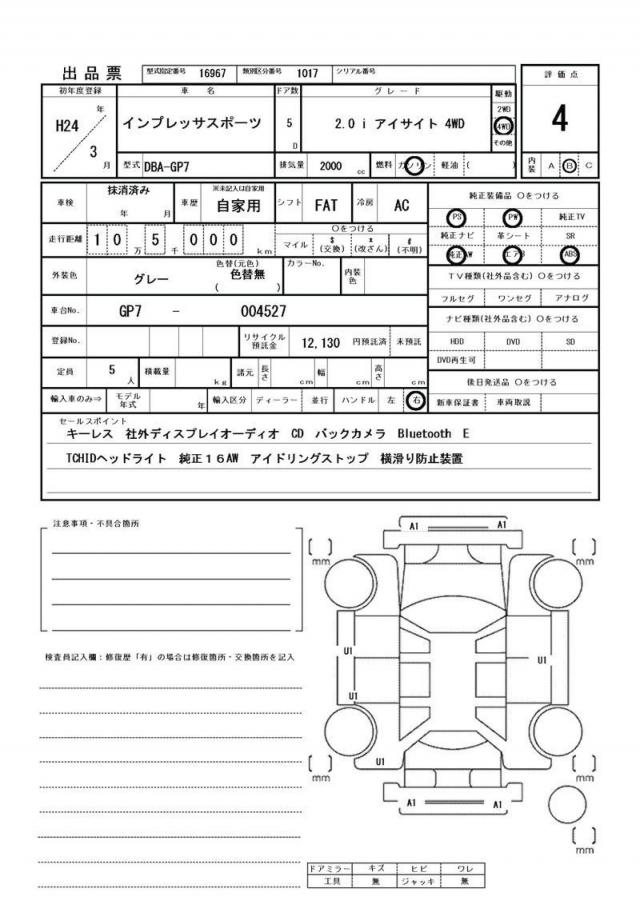 出品票 型式指定番号 16967 類別区分番号 1017 シリアル番号
評価点
初年度登録 車名 ドア数 グレード 駆動
H24 年 インプレッサスポーツ 5 D 2.0 i アイサイト 4WD 2WD 4WD その他
4
3 月 型式 DBA-GP7 排気量 2000 cc 燃料 ガソリン 軽油 ( )
内装 A B C
車検 抹消済み 年 月 車歴 ※未記入は自家用 自家用 シフト FAT 冷房 AC
純正装備品 〇をつける
PS PW 純正TV
走行距離 10 万 5 千 000 km 〇をつける マイル $ (交換) * (改ざん) # (不明)
純正ナビ 革シート SR
純正AW エアB ABS
外装色 グレー 色替(元色) 色替無 ( ) カラーNo. 内装色
TV種類(社外品含む) 〇をつける
フルセグ ワンセグ アナログ
車台No. GP7 - 004527
ナビ種類(社外品含む) 〇をつける
登録No. リサイクル預託金 12,130 円預託済 未預託
HDD DVD SD
DVD再生可
定員 5 人 積載量 kg 諸元 長さ cm 幅 cm 高さ cm
後日発送品 〇をつける
輸入車のみ⇒ モデル年式 年 輸入区分 ディーラー 並行 ハンドル 左 右
新車保証書 車両取説
セールスポイント
キーレス 社外ディスプレイオーディオ CD バックカメラ Bluetooth E
TCHIDヘッドライト 純正16AW アイドリングストップ 横滑り防止装置
注意事項・不具合箇所
A1 A1
mm mm
検査員記入欄:修復歴「有」の場合は修復箇所・交換箇所を記入
U1
U1
U1
U1
mm mm
A1 A1
mm
ドアミラー キズ ヒビ ワレ
工具 無 ジャッキ 無